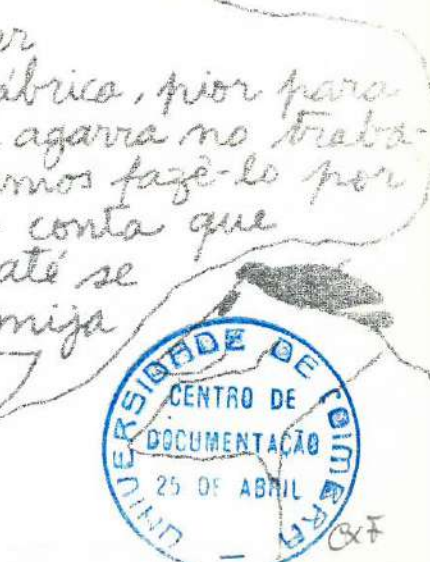 er
ábrica, pior para
agarra no trabá-
mos fazê-lo por
conta que
até se
mija
UNIVERSIDADE DE COIMBRA
CENTRO DE
DOCUMENTAÇÃO
25 DE ABRIL